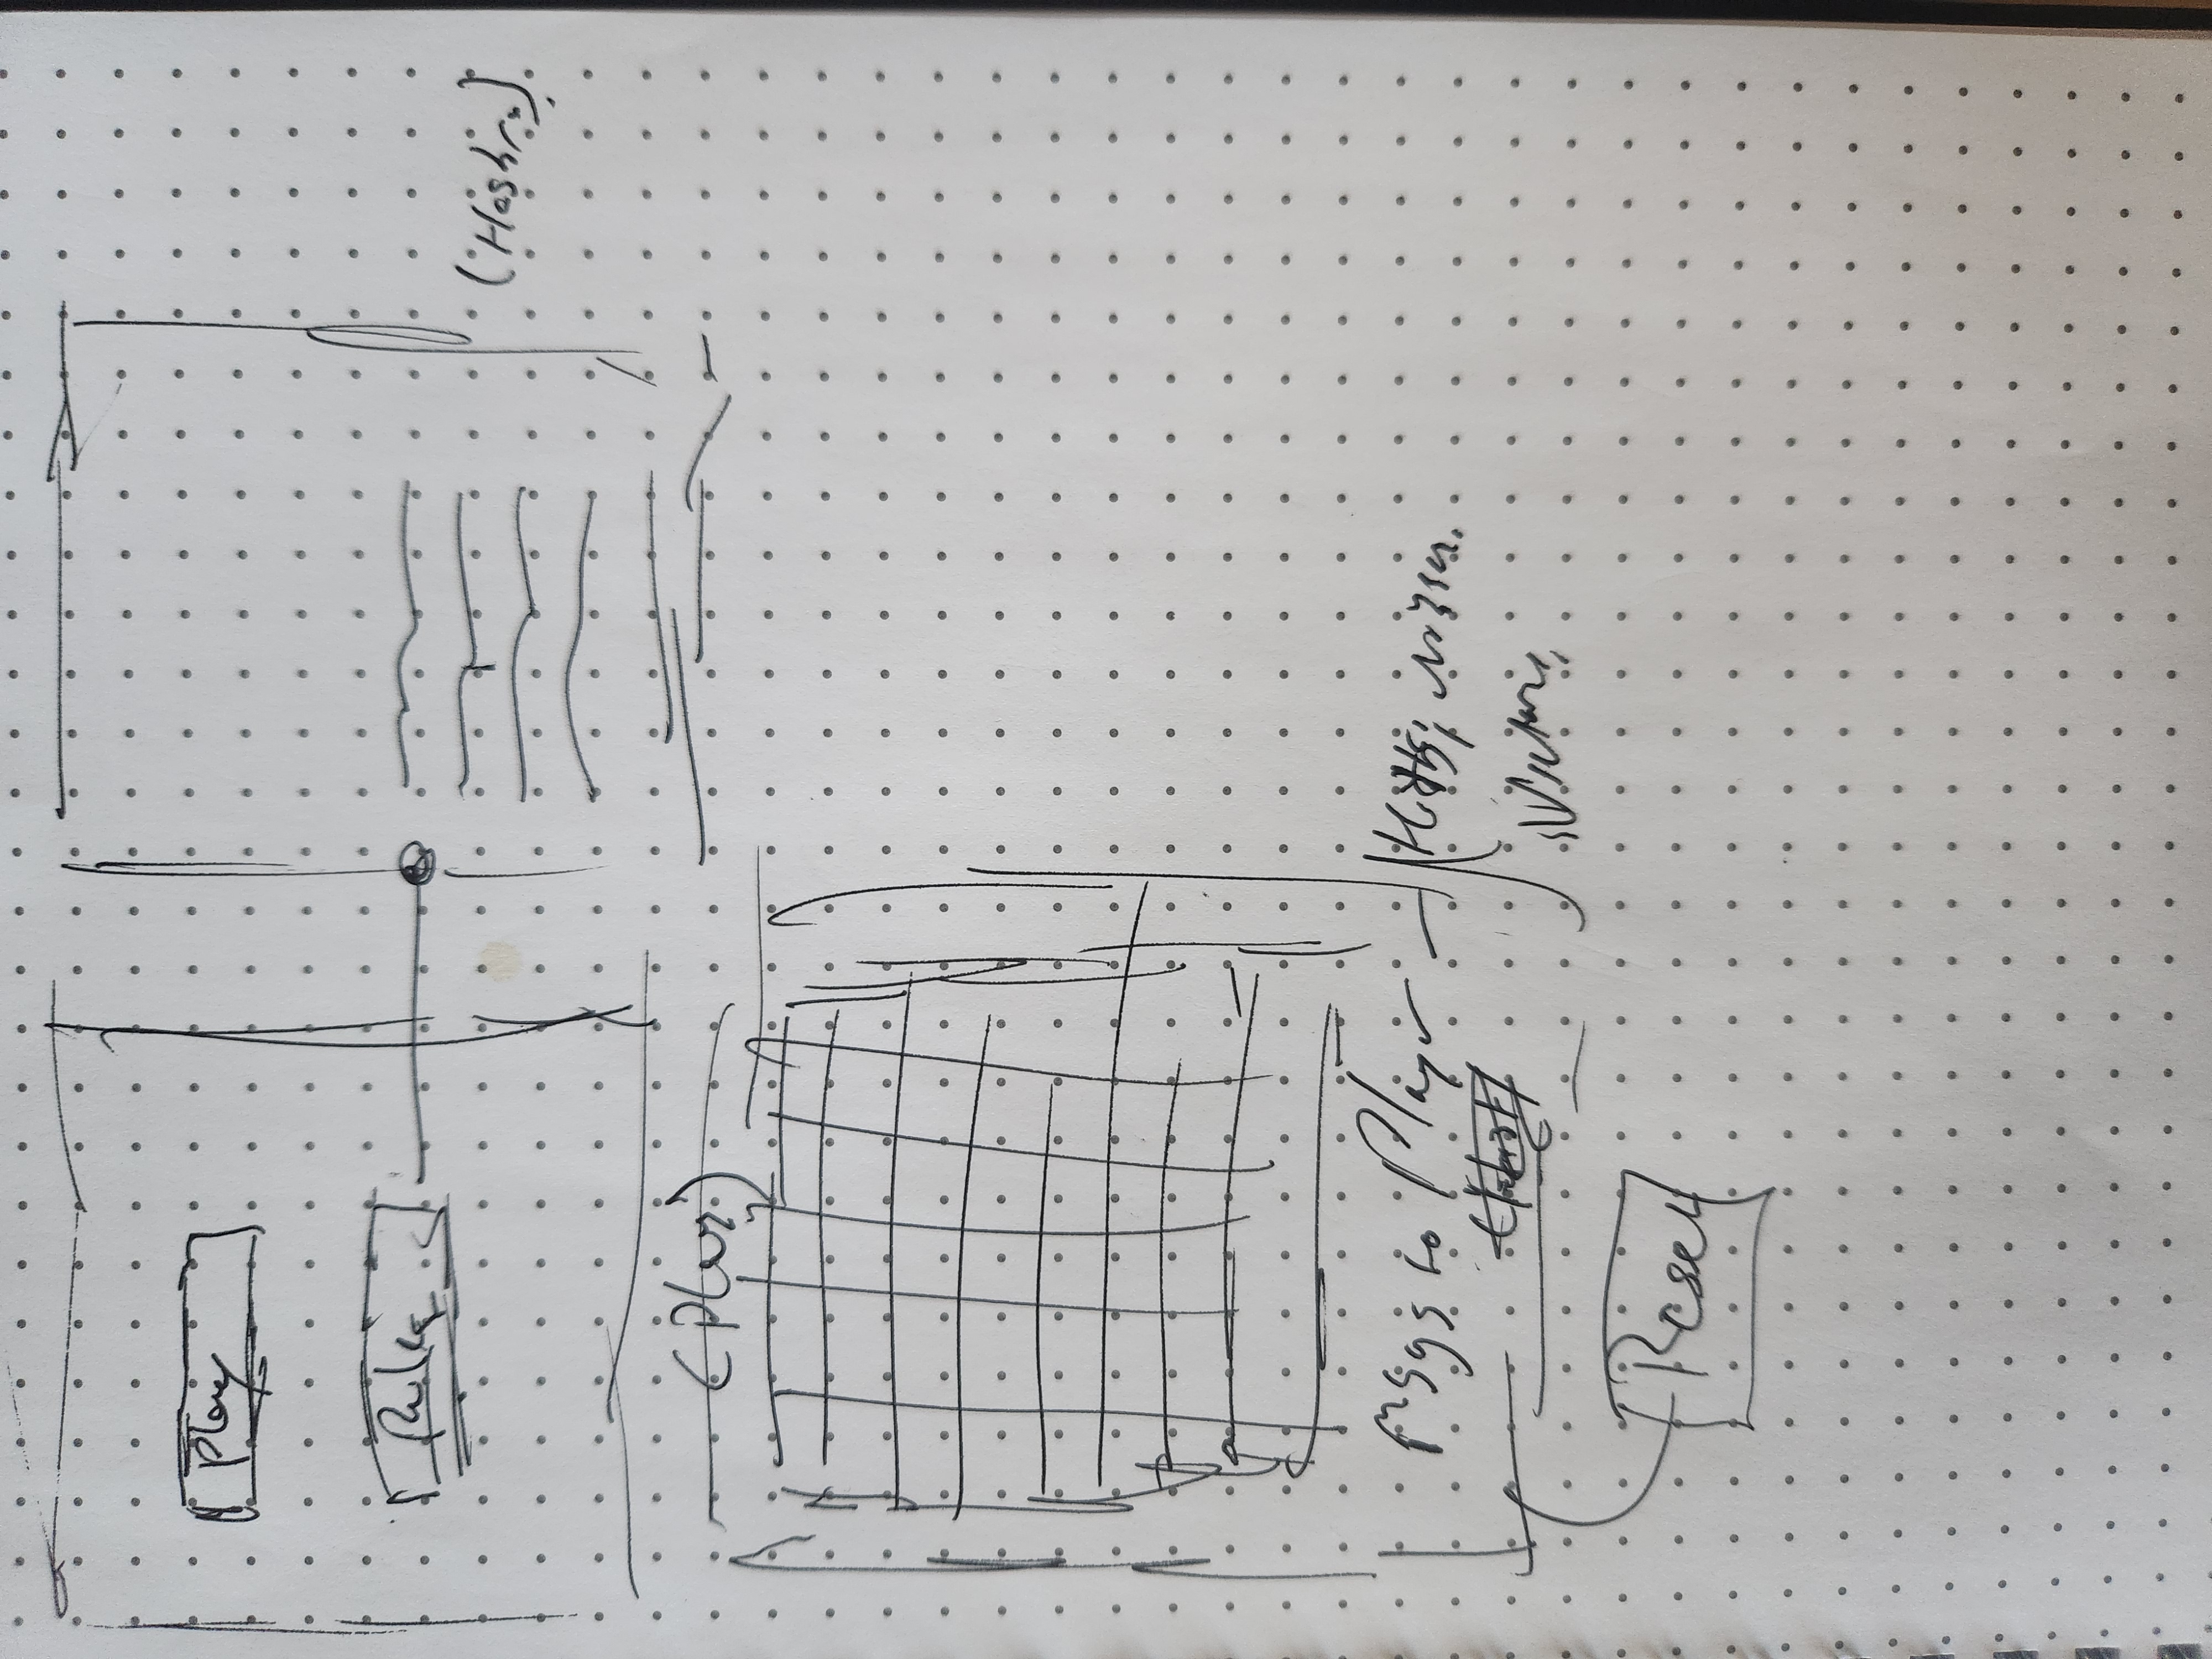 Play
Rules
(Play)
Msgs to Player - Hits, Misses,
Victory,
Reset